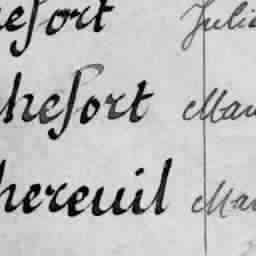 efort Julie
hefort Mau
hereuil Mar